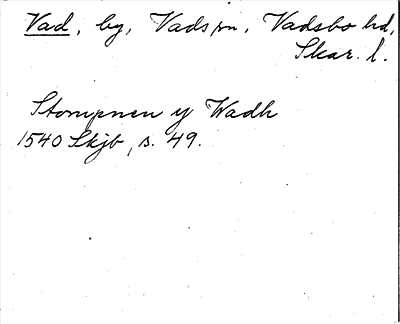 Vad, by, Vads sn, Vadsbo hd,
Skar. l.
Stompnen y Wadh
1540 Skjb, s. 49.